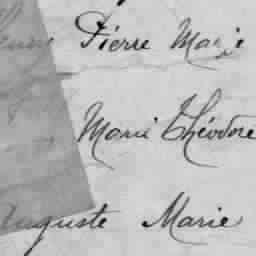 Pierre Marie
Marie Théodore
Auguste Marie